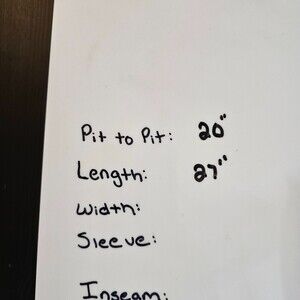 Pit to Pit: 20"
Length: 27"
Width:
Sleeve:
Inseam: